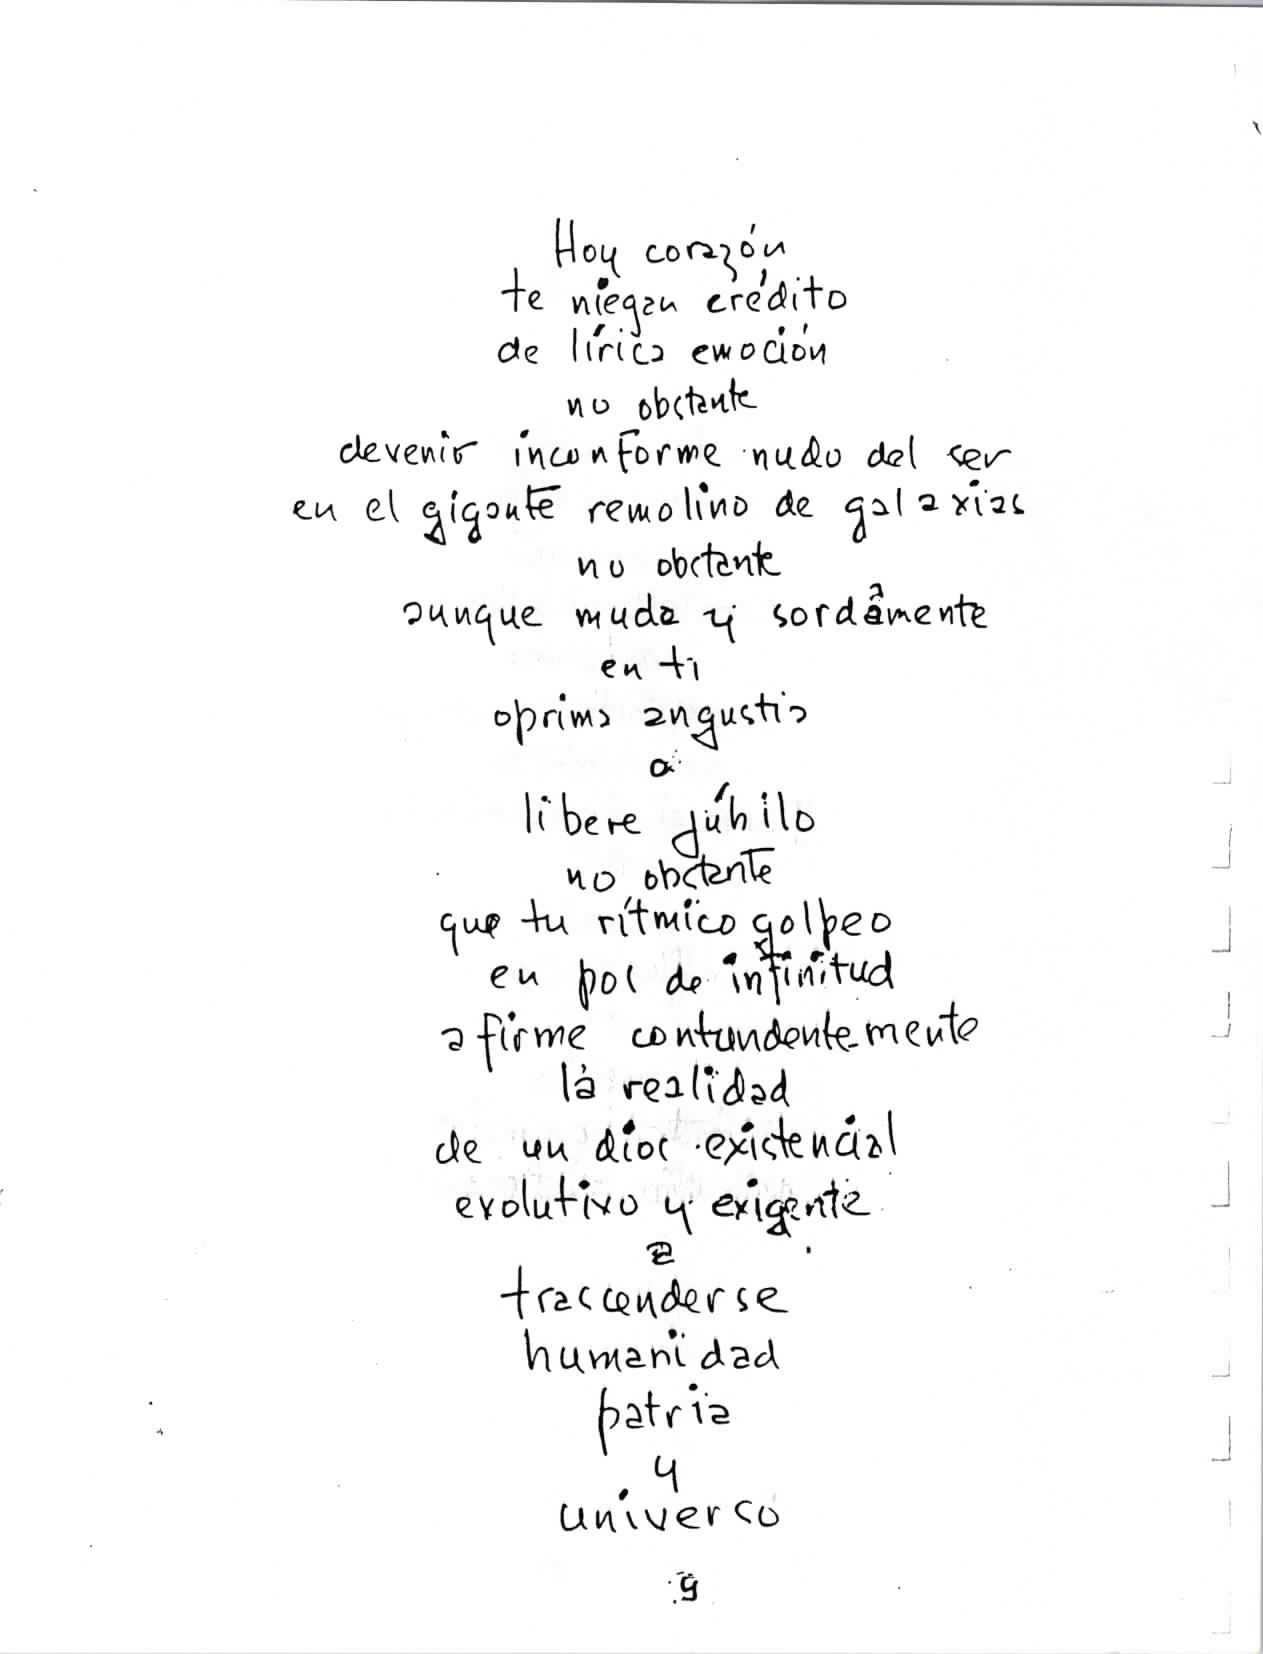 Hoy corazón
te niegan crédito
de lírica emoción
no obstante
devenir inconforme nudo del ser
en el gigante remolino de galaxias
no obstante
aunque muda y sordamente
en ti
oprima angustia
o
libere júbilo
no obstante
que tu rítmico golpeo
en pos de infinitud
afirme contundentemente
la realidad
de un dios existencial
evolutivo y exigente
a
trascenderse
humanidad
patria
y
universo
9